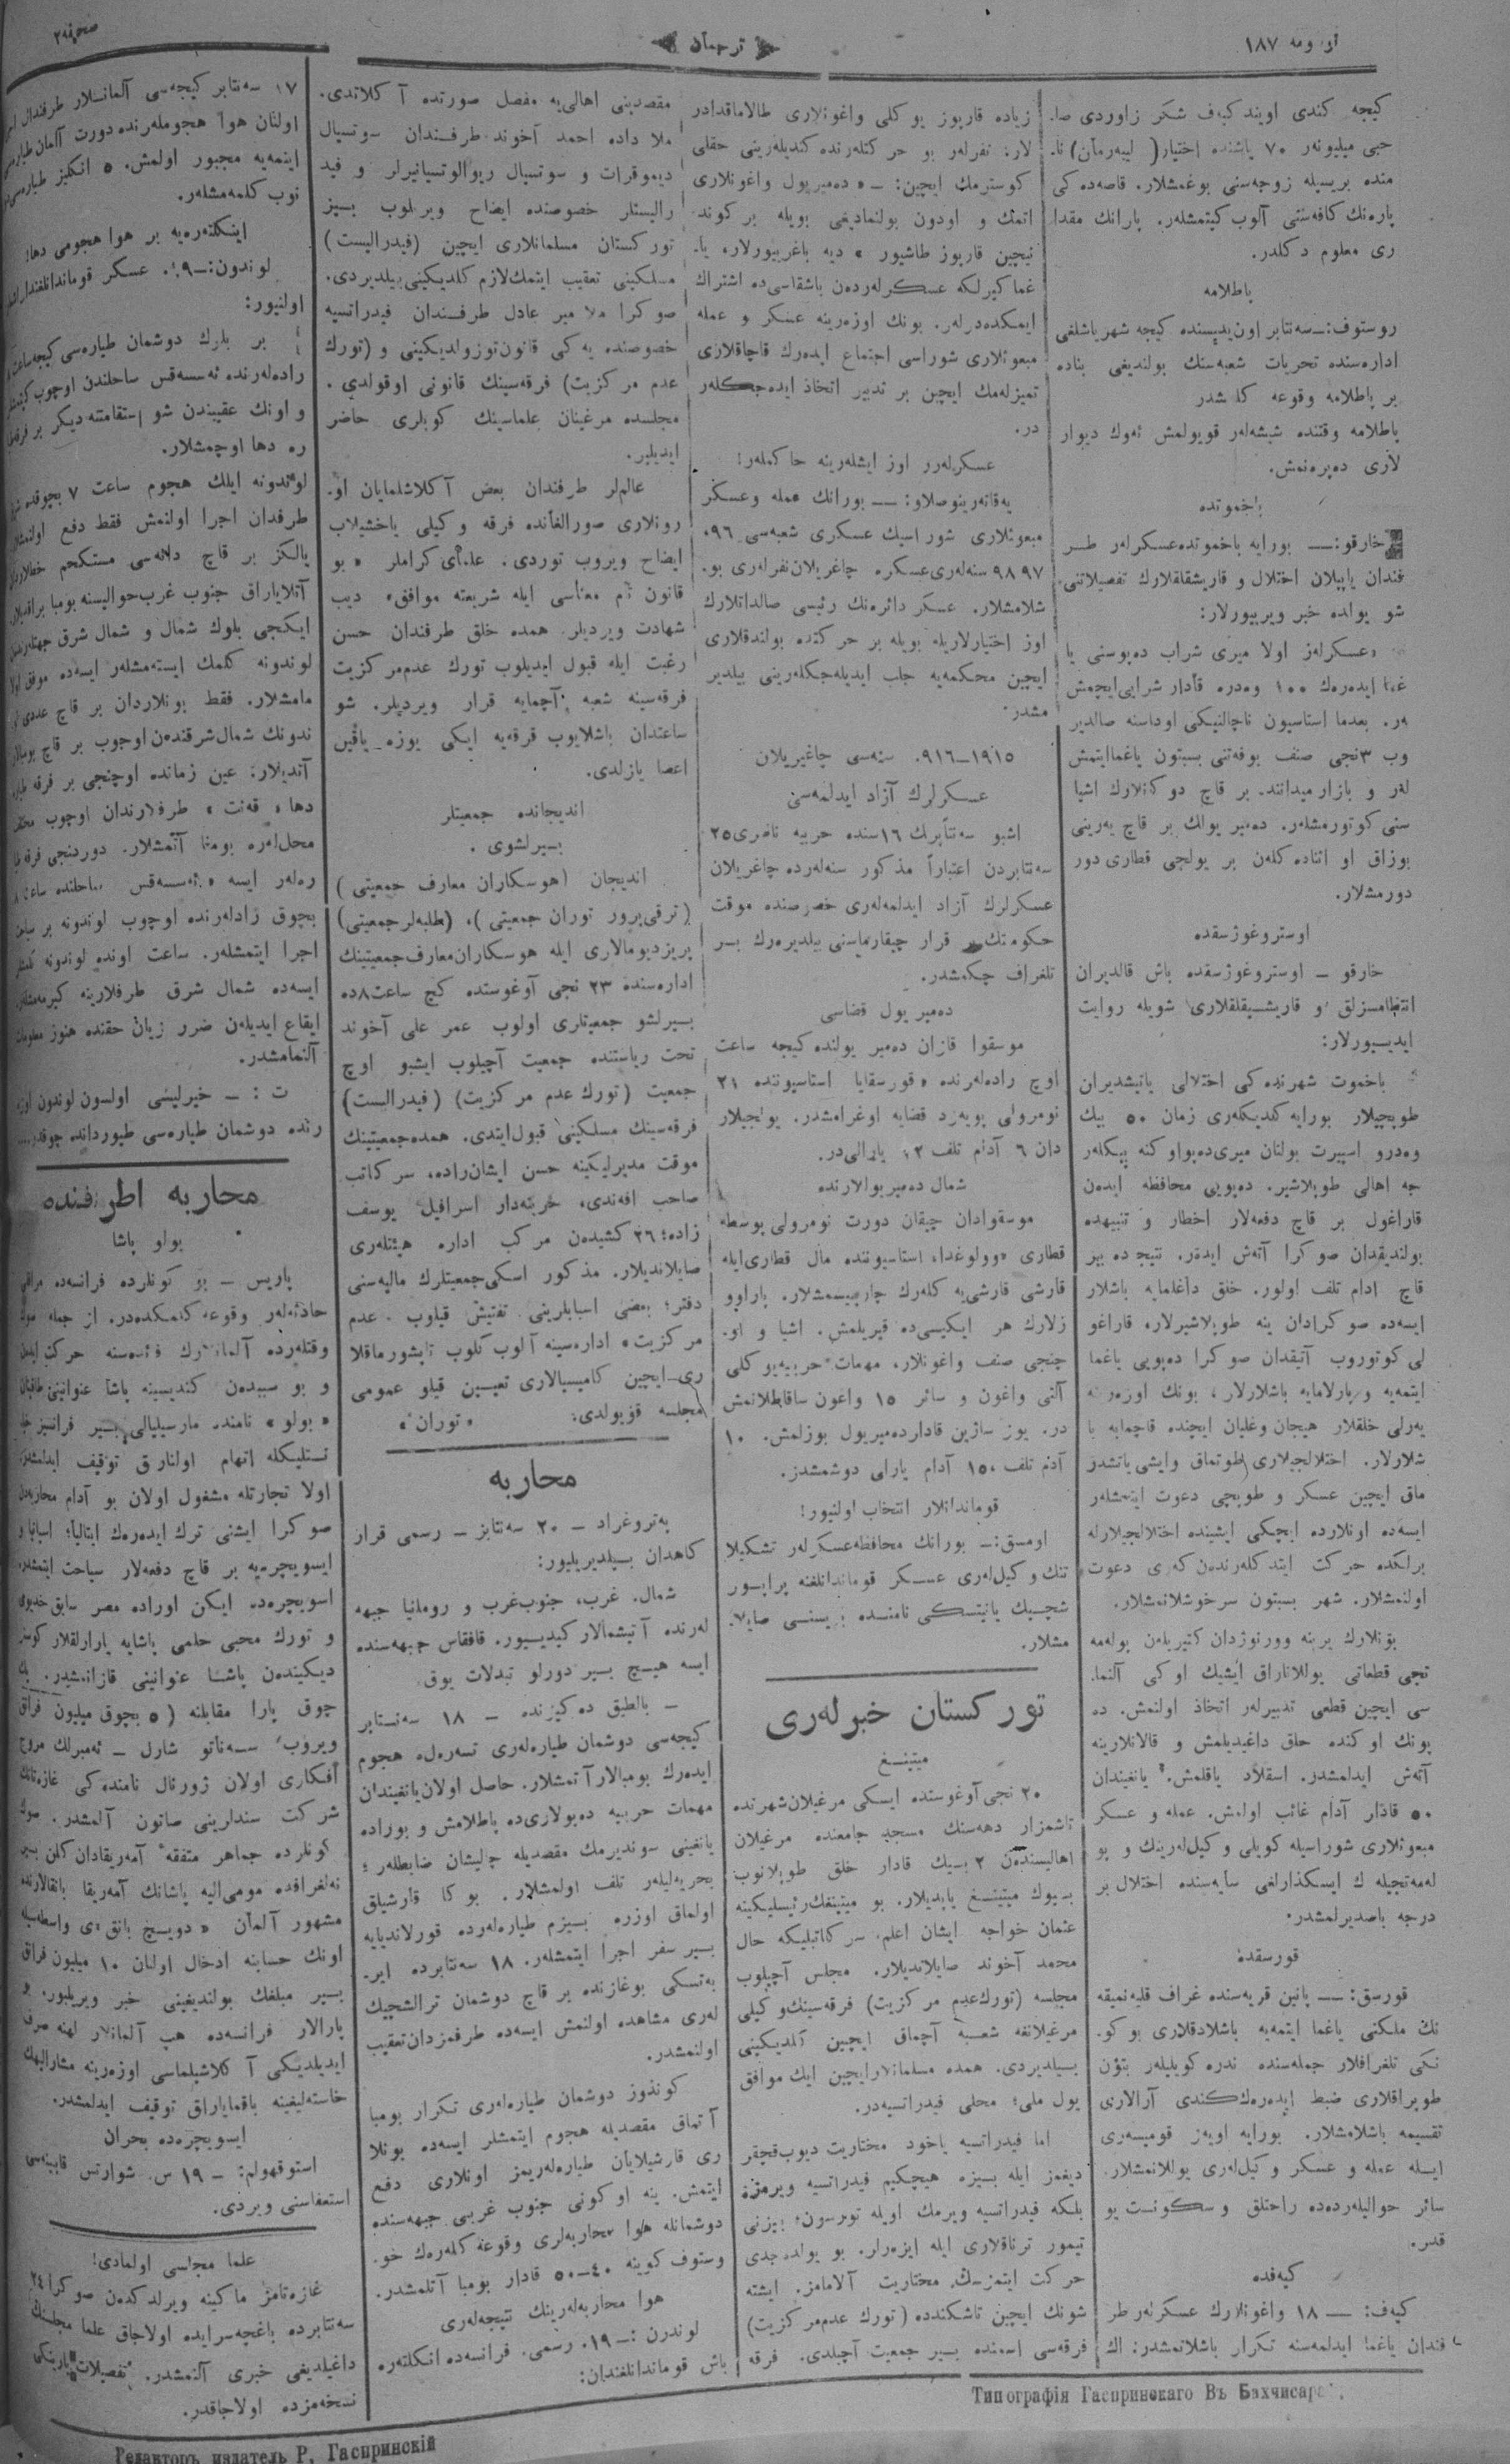 نومه ١٨٧
ترجمان
صحیفه ٢
كیجه كندی اویند كیف شكر زاوردی صا-
حبی میلیونر ٧٠ یاشنده اختیار (لیبەرمان) نا-
منده بریسیله زوجه‌سنی بوغمشلار. قاصه‌ده كی
پاره‌نك كافه‌سنی آلوب كیتمشلەر. پارانك مقدا
ری معلوم دكلدر.
پاطلامه
روستوف:ـ سەنتابر اون یدیسنده كیجه شهر باشلغی
اداره‌سنده تحریات شعبه‌سنك بولندیغی بناده
بر پاطلامه وقوعه كلمشدر
پاطلامه وقتنده شیشه‌لەر قویولمش ئەوك دیوار
لاری دەپرەنمش.
باخموتده
خارقو: ـــ بورایه باخموتده عسكرلەر طـر
فندان یاپیلان اختلال و قاریشقلقلارك تفصیلاتنی
شو یولده خبر ویرییورلار:
«عسكرلەر اولا میری شراب دەپوسنی یا
غما ایدەرەك ١٠٠ وەدره قادار شرابی ایچمش
لەر. بعدما استاسیون ناچالنیكی اوداسنه صالدیر
وب ٣نجی صنف بوفەتنی بسبتون یاغما ایتمش
لەر و بازار میدانند. بر قاچ دوكانلارك اشیا
سنی كوتورمشلەر. دەمیر یولك بر قاچ یەرینی
بوزاق او اثناده كلەن بر یولجی قطاری دور
دورمشلار.
اوستروغوژسقده
خارقو ـ اوستروغوژسقده باش قالدیران
انتظامسزلق و قاریشـیقلقلاری شویله روایت
ایدیـیورلار:
باخموت شهرنده كی اختلالی یاتیشدیران
طوپچیلار بورایه كلدیكلەری زمان ٥٠ بیك
وەدرو اسپیرت بولنان میری دەپو اوكنه بیكلەر
جه اهالی طوپلاشیر. دەپویی محافظه ایدەن
قاراغول بر قاچ دفعه‌لار اخطار و تنبیهده
بولندیقدان صوكرا آتەش ایدەر. نتیجه ده بیر
قاچ ادام تلف اولور. خلق داغلمایه باشلار
ایسه‌ده صوكرادان ینه طوپلاشیرلار، قاراغو
لی كوتوروب آتیقدان صوكرا دەپویی یاغما
ایتمه‌یه و پارلامایه باشلارلار، بونك اوزەرینه
یەرلی خلقلار هیجان و غلیان ایچنده قاچمایه با
شلارلار. اختلالجیلاری طوتماق و ایشی یاتشدر
ماق ایچین عسكر و طوپچی دعوت ایتمشلەر
ایسه‌ده اونلارده ایچكی ایشینده اختلالجیلارله
برلكده حركت ایتدكلەرندەن كەری دعوت
اولنمشلار. شهر بسبتون سرخوشلانمشلار.
بونلارك یرینه وورنوژدان كتیریلەن بولەمه
تجی قطعاتی یوللاناراق ایشیك اوكی آلنما-
سی ایچین قطعی تدبیرلەر اتخاذ اولنمش. دە
پونك اوكنده حلق داغیدیلمش و قالانلارینه
آتەش ایدلمشدر. اسقلاد یاقلمش. یانغیندان
٥٠ قادار آدام غائب اولمش. عمله و عسكر
مبعوثلاری شوراسیله كویلی و كیل‌لەرینك و بو
لەمه‌تجیله ك ایسكذارلغی سایه‌سنده اختلال بر
درجه باصدیرلمشدر.
قورسقده
قورسق: ـــ پانین قریه‌سنده غراف قلیه‌نمیقه
نك ملكنی یاغما ایتمه‌یه باشلادقلاری بو كو-
نكی تلغرافلار جمله‌سنده ندره كویلیلەر بتون
طوپراقلاری ضبط ایدەرەك كندی آرالاری
تقسیمه باشلامشلار. بورایه اویەز قومیسه‌ری
ایـله عمله و عسكر وكیل‌لەری یوللانمشلار.
سائر حوالیلەرده‌ده راحتلق و سكونت یو
قدر.
كیه‌فده
كیه‌ف: ـــ ١٨ واغونلارك عسكرلەر طر
فندان یاغما ایدلمه‌سنه تكرار باشلانمشدر: اك
زیاده قارپوز یوكلی واغونلاری طالاماقدادر
لار. نفرلەر بو حركتلەرنده كندیلەرینی حقلی
كوسترمك ایچین: ـ «دەمیر یول واغونلاری
اتمك و اودون بولنمادیغی بویله بر كوند-
نیچین قارپوز طاشیور» دیه باغریییورلار، یا-
غما كیرلكه عسكرلەردەن باشقاسی‌ده اشتراك
ایمكده‌درلەر. بونك اوزەرینه عسكر و عمله
مبعوثلاری شوراسی اجتماع ایدەرك قاچاقلاری
تمیزله‌مك ایچین بر تدبیر اتخاذ ایده‌جكلەر
در.
عسكرلەر اوز ایشلەرینه حاكملەر!
یەقاتەرینوصلاو: ـــ بورانك عمله و عسكر
مبعوثلاری شوراسیك عسكری شعبه‌سی ٩٦،
٩٧ ٩٨ سنه‌لەری عسكره چاغریلان نفرلەری بو-
شلامشلار. عسكر دائرەنك رئیسی صالداتلارك
اوز اختیارلاریله بویله بر حركتده بولندقلاری
ایچین محكمه‌یه جلب ایدیله‌جكلەرینی بیلدیر
مشدر.
١٩١٥ـ٩١٦. سنه‌سی چاغیریلان
عسكرلرك آزاد ایدلمه‌سی
اشبو سەنتابرك ١٦سنده حربیه ناظری ٢٥
سەنتابردن اعتباراً مذكور سنه‌لەرده چاغریلان
عسكرلرك آزاد ایدلمه‌لەری خصوصنده موقت
حكومتك قرار چیقارماسنی بیلدیره‌رك بـر
تلغراف چكمشدر.
دەمیر یول قضاسی
موسقوا قازان دەمیر یولنده كیجه ساعت
اوچ راده‌لەرنده «قورسقایا» استاسیوننده ٢١
نومرولی پویەزد قضایه اوغرامشدر. یولجیلار
دان ٦ آدام تلف ١٢ یارالی‌در.
شمال دەمیر یوالارنده
موسقوادان چیقان دورت نومرولی پوسطه
قطاری «وولوغدا» استاسیوننده مال قطاری ایله
قارشی قارشی‌یه كلەرك چارپیشمشلار. پاراوو
زلارك هر ایكیسی‌ده قیریلمش. اشیا و او-
چنجی صنف واغونلار، مهمات حربیه یوكلی
آلتی واغون و سائر ١٥ واغون ساقاطلانمش
در. یوز ساژین قادار دەمیر یول بوزلمش. ١٠
آدم تلف ١٥٠ آدام یارالی دوشمشدر.
قوماندانلار انتخاب اولنیور!
اومسق:ـ بورانك محافظه عسكرلەر تشكیلا
تنك وكیل‌لەری عسـكر قوماندانلغنه پراپـور
شچـیك یانیتسكی نامنـده بریسنـی صایلا-
مشلار.
توركستان خبرلەری
میتینـغ
٢٠ نجی آوغوستده ایسكی مرغیلان شهرنده
تاشمزار دهه‌سنك مسجد جامعنده مرغیلان
اهالیسندەن ٢ بـیك قادار خلق طوپلانوب
بـیوك میتینـغ یاپدیلار. بو میتینغك رئیسلیكینه
عثمان خواجه ایشان اعلم، سركاتبلیكه حال
محمد آخوند صایلاندیلار. مجلس آچیلوب
مجلسه (تورك عدم مركزیت) فرقه‌سینك وكیلی
مرغیلانغه شعـبه آچماق ایچین كلدیكینی
بـیلدیردی. همده مسلمانلار ایچین ایك موافق
یول ملی، محلی فیدراتسیه‌در.
اما فیدراتسیه یاخود مختاریت دیوب قچقر
دیغمز ایله بـیزه هیچكیم فیدراتسیه ویرمزه
بلكه فیدراتسیه ویرمك اویله تورسون، بیزنی
تیمور ترناقلاری ایله ایزەرلر. بو یولده جدی
حركت ایتمزـك، مختاریت آلامامز. ایشته
شونك ایچین تاشكندده (تورك عدم مركزیت)
فرقه‌سی اسمنده بـیر جمعیت آچیلدی. فرقه
مقصدینی اهالی‌یه مفصل صورتده آكلاتدی.
ملا داده احمد آخوند طرفـندان سوتسیال
دیموقرات و سوتسیال ریوالوتسیانیرلر و فید
رالیستلر خصوصنده ایضاح ویریلوب بـیز
توركستان مسلمانلاری ایچین (فیدرالیست)
مسلكینی تعقیب ایتمك لازم كلدیكینی بیلدیردی.
صوكرا ملا میر عادل طرفـندان فیدراتسیه
خصوصنده یه كی قانون توزولدیكینی و (تورك
عدم مركزیت) فرقه‌سینك قانونی اوقولدی.
مجلسده مرغینان علماسینك كوبلری حاضر
ایدیلر.
عالم‌لر طرفندان بعض آكلاشلمایان او-
رونلاری صورالغانده فرقه وكیلی یاخشیلاب
ایضاح ویروب توردی. علمای كراملر «بو
قانون تم معناسی ایله شریعته موافق» دیب
شهادت ویردیلر. همده خلق طرفندان حسن
رغبت ایله قبول ایدیلوب تورك عدم مركزیت
فرقه‌سینه شعبه آچمایه قرار ویردیلر. شو
ساعتدان باشلایوب فرقه‌یه ایكی یوزه یاقین
اعضا یازلدی.
اندیجانده جمعیتلر
بـیرلشوی.
اندیجان (هوسكاران معارف جمعیتی)
(ترقی‌پرور توران جمعیتی)، (طلبه‌لر جمعیتی)
پریزدیومالاری ایله هوسكاران معارف جمعیتینك
اداره‌سنده ٢٣ نجی آوغوستده كچ ساعت ٨ده
بـیرلشو جمعیتلری اولوب عمر علی آخوند
تحت ریاستنده جمعیت آچیلوب ایشبو اوچ
جمعیت (تورك عدم مركزیت) (فیدرالیست)
فرقه‌سینك مسلكینی قبول ایتدی. همده جمعیتینك
موقت مدیرلیكینه حسن ایشان زاده، سركاتب
صاحب افندی، خزینه‌دار اسرافیل یوسف
زاده؛ ٢٦ كشیدەن مركب اداره هیئتلەری
صایلاندیلار. مذكور اسكی جمعیتلرك مالیه‌سنی
دفتر؛ بعضی اسبابلرینی تفتیش قیلوب ـ عدم
مركزیت» اداره‌سینه آلوب كلوب تاپشورماقلا
ری ایچین كامیسیالاری تعیـین قیلو عمومی
مجلسه قویولدی. «توران»
محاربه
پەتروغراد ـ ٢٠ سەنتابر ـ رسمی قرار
كاهدان بـیلدیریلیور:
شمال. غرب، جنوب غرب و رومانیا جبهه
لەرنده آتیشمالار كیدیـیور. قافقاس جبهه‌سنده
ایسه هیـچ بـیر دورلو تبدلات یوق.
ـ بالطیق دەكیزنده ـ ١٨ سەنتابر
كیجه‌سی دوشمان طیاره‌لەری تسەرەله هجوم
ایدەرك بومبالار آتمشلار. حاصل اولان یانغیندان
مهمات حربیه دەپولاری‌ده پاطلامش و بوراده
یانغینی سوندیرمك مقصدیله چالیشان ضابطلەر؛
بحریه‌لیلەر تلف اولمشلار. بوكا قارشیلق
اولماق اوزره بـیزم طیاره‌لەرده قورلاندیایه
بـیر سفر اجرا ایتمشلەر. ١٨ سەنتابرده ایر-
بەنسكی بوغازنده بر قاچ دوشمان ترالشچیك
لەری مشاهده اولنمش ایسه‌ده طرفمزدان تعقیب
اولنمشدر.
كوندوز دوشمان طیاره‌لەری تكرار بومبا
آتماق مقصدیله هجوم ایتمشلر ایسه‌ده بونلا
ری قارشیلایان طیاره‌لەریمز اونلاری دفع
ایتمش. ینه اوكونی جنوب غربی جبهه‌سنده
دوشمانله هوا محاربه‌لری وقوعه كلەرەك خو-
وستوف كوینه ٤٠ـ٥٠ قادار بومبا آتلمشدر.
هوا محاربه‌لەرینك نتیجه‌لەری
لوندرن :ـ ١٩. رسمی. فرانسه‌ده انكلتەره
باش قوماندانلغندان:
١٧ سەنتابر كیجه‌سی آلمانـلار طرفندان
اولنان هوا هجوملەرنده دورت آلمان طیاره‌سی
اینمه‌یه مجبور اولمش. ٥ انكلیز طیاره‌سی
نوب كلمه‌مشلەر.
اینكلتەره‌یه بر هوا هجومی دها!
لوندون:ـ ١٩. عسكر قومانداناغندان
اولنیور:
بر بلوك دوشمان طیاره‌سی كیجه ساعت
راده‌لەرنده ئەسسەقس ساحلندن اوچوب
و اونك عقیبندن شو استقامتنه دیكر بر فرقه
ره دها اوچمشلار.
لوندونه ایلك هجوم ساعت ٧ بچوقده
طرفدان اجرا اولنمش فقط دفع اولنمش
یالكز بر قاچ دانه‌سی مستحكم
آتلایاراق جنوب غرب حوالیسنه بومبا
ایكنجی بلوك شمال و شمال شرق
لوندونه كلمك ایسته‌مشلەر ایسه‌ده موفق اولا
مامشلار. فقط بونلاردان بر قاچ عددی
ندونك شمال شرقندەن اوچوب بر قاچ
آتدیلار: عین زمانده اوچنجی بر فرقه
دها «قەنت» طرفلارندان اوچوب
محل‌لەره بومبا آتمشلار. دوردنجی فرقه
رەلەر ایسه «ئەسسەقس» ساحلنده ساعت ٨
بچوق رادەلەرنده اوچوب لوندونه بر
اجرا ایتمشلەر. ساعت اونده لوندونه
ایسه‌ده شمال شرق طرفلارینه كیرمه‌مشلەر.
ایقاع ایدیلەن ضرر زیان حقنده هنوز معلومات
آلنمامشدر.
ت : ـ خیرلیسی اولسون لوندون
رنده دوشمان طیاره‌سی طیورداندە چوقدر....
محاربه اطرافنده
بولو پاشا
پاریس ـ بو كونلرده فرانسه‌ده
حادثه‌لەر وقوعه كلمكده‌در. از جمله
وقتلەرده آلمانلارك فائده‌سنه حركت
و بو سببدەن كندیسینه پاشا عنوانینی
«بولو» نامند. مارسیلیالی بـیر فرانسز
نستلیكله اتهام اولناراق توقیف ایدلمشدر.
اولا تجارتله مشغول اولان بو آدام محاربه‌دن
صوكرا ایشنی ترك ایدەرەك ایتالیا؛ اسپانیا و
ایسویچره‌یه بر قاچ دفعه‌لار سیاحت ایتمشدر.
اسویچره‌ده ایكن اوراده مصر سابق خدیوی
و تورك محبی حلمی پاشایه یارارلقلار كوستر
دیكیندەن پاشـا عنوانینی قازانمشدر.
چوق پارا مقابلنه (٥ بچوق میلیون فراق
ویروب) سـەناتو شارل ـ ئەمبرلك مروج
آفكاری اولان ژورنال نامنده كی
شركت سندارینی صاتون آلمشدر.
كونلرده جماهر متفقه آمەریقادان كلن بیر
تەلغرافده مومی‌الیه پاشانك آمەریقا بانقالارنده
مشهور آلمان «دویـچ بانق»ی واسطه‌سیله
اونك حسابنه ادخال اولنان ١٠ میلیون فراق
بـیر مبلغك بولندیغینی خبر ویریلیور. و
پارالار فرانسه‌ده هپ آلمانلار لهنه صرف
ایدیلدیكی آكلاشیلماسی اوزەرینه مشارالیهك
خاسته‌لیغینه باقمایاراق توقیف ایدلمشدر.
ایسویچره‌ده بحران
استوقهولم: ـ ١٩ س. شوارتس قابینه‌سی
استعفاسنی ویردی.
علما مجلسی اولمادی!
غازه‌تامز ماكینه ویرلدكدەن صوكرا ٢٤
سەنتابرده باغچه‌سرایده اولاجاق علما مجلسنك
داغیلدیغی خبری آلنمشدر. تفصیلات یارینكی
نسخه‌مزده اولاجاقدر.
Типографія Гаспринскаго Въ Бахчисара
Редакторъ издатель Р. Гаспринскій